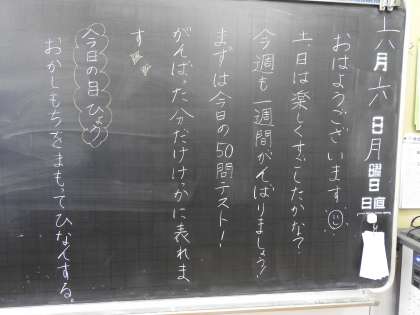 六月六日月曜日
日直
おはようございます
土、日は楽しくすごしたかな?
今週も一週間がんばりましょう!
まずは今日の50問テスト!
がんばった分だけけっかに表れま
す
今日の目ひょう
おかしもちをまもってひなんする。